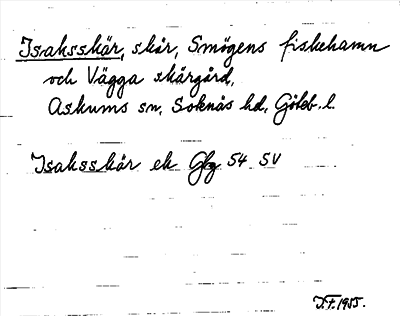 Isaksskär, skär, Smögens fiskehamn
och Vägga skärgård,
Askums sn, Sotenäs hd, Göteb. l.
Isaksskär ek Gbg 54 SV
1955.